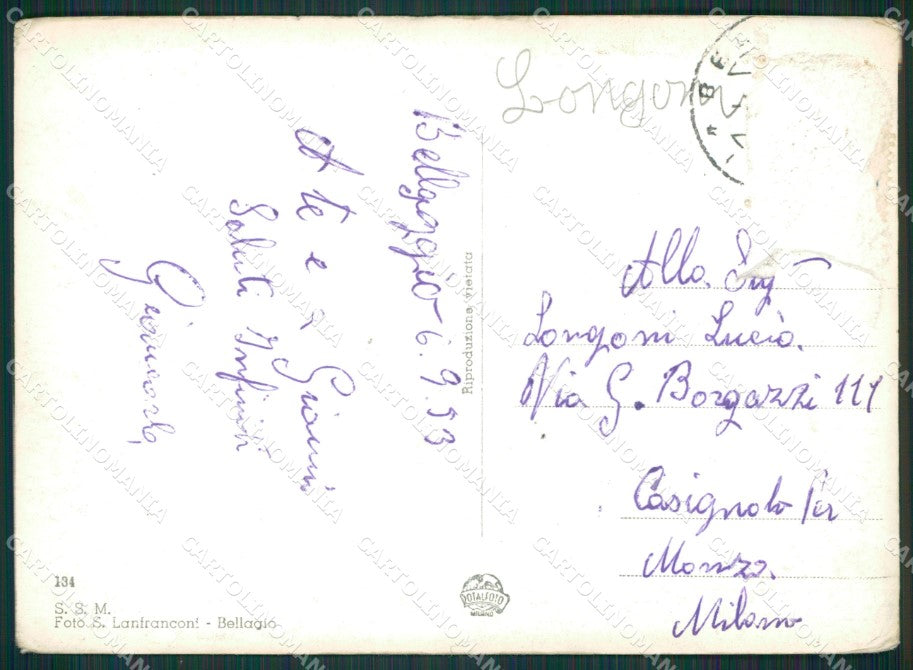 Bellaggio 6.9.53
A te e a Gianni
Saluti Infiniti
Longoni
Allo. Sig
Longoni Lucio.
Via G. Borgazzi 111
Casignolo Per
Monza.
Milano
Riproduzione vietata
134
S. S. M.
Foto S. Lanfranconi - Bellagio
TOTALFOTO
MILANO
CARTOLINOMANIA